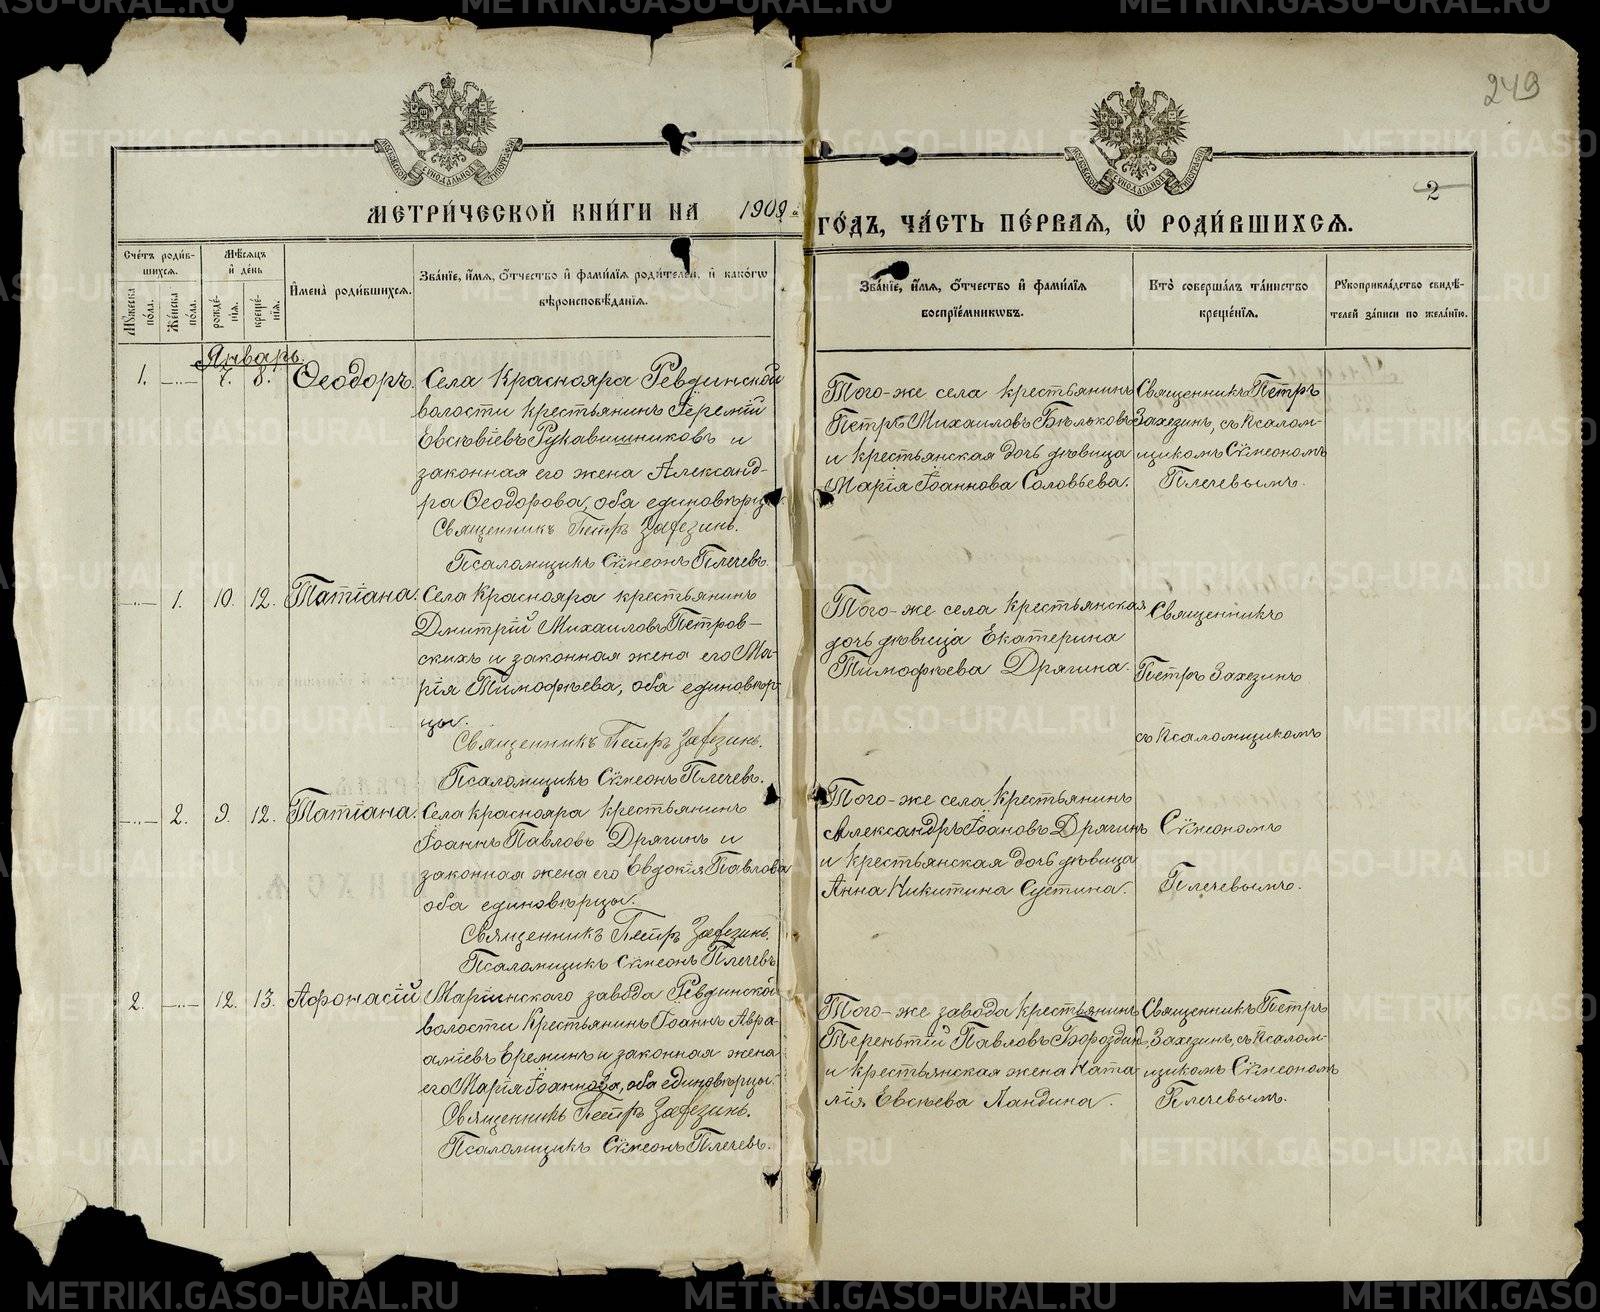 249
МОСКОВСКОЙ СѴНОДАЛЬНОЙ ТИПОГРАФІИ
МОСКОВСКОЙ СѴНОДАЛЬНОЙ ТИПОГРАФІИ
2
МЕТРИ́ЧЕСКОЙ КНИ́ГИ НА 1909й ГО́ДЪ, ЧА́СТЬ ПЕ́РВАѦ, Ѡ҆ РОДИ́ВШИХСѦ.
Сче́тъ роди́в-
шихсѧ.
Мꙋ́жеска
по́ла.
Же́нска
по́ла.
Мѣ́сѧцъ
и҆ де́нь
рожде́-
нїѧ.
креще́-
нїѧ.
И҆мена̀ роди́вшихсѧ.
Зва́нїе, и҆́мѧ, ѻ҆́тчество и҆ фами́лїѧ роди́телей, и҆ како́гѡ
вѣроисповѣ́данїѧ.
Зва́нїе, и҆́мѧ, ѻ҆́тчество и҆ фами́лїѧ
воспрїе́мникѡвъ.
Кто̀ соверша́лъ та́инство
креще́нїѧ.
Рꙋкоприкла́дство свидѣ́-
телей за́писи по жела́нїю.
Январь.
1. —"— 7. 8. Ѳеодоръ.
Села Краснояра Ревдинской
волости крестьянинъ Іеремій
Евсѣвіевъ Рукавишниковъ и
законная его жена Александ-
ра Ѳеодорова, оба единовѣрцы
Священникъ Петръ Захезинъ.
Псаломщикъ Сѵмеонъ Плечевъ.
Того-же села крестьянинъ
Петръ Михаиловъ Бѣльковъ
и крестьянская дочь дѣвица
Марія Іоаннова Соловьева.
Священникъ Петръ
Захезинъ, съ псалом-
щикомъ Сѵмеономъ
Плечевымъ.
—"— 1. 10. 12. Татіана.
Села Краснояра крестьянинъ
Дмитрій Михаиловъ Петров-
скихъ и законная жена его Ма-
рія Тимофѣева, оба единовѣр-
цы.
Священникъ Петръ Захезинъ.
Псаломщикъ Сѵмеонъ Плечевъ.
Того-же села крестьянская
дочь дѣвица Екатерина
Тимофѣева Дрягина.
Священникъ
Петръ Захезинъ
съ псаломщикомъ
—"— 2. 9. 12. Татіана.
Села Краснояра крестьянинъ
Іоаннъ Павловъ Дрягинъ и
законная жена его Евдокія Павлова
оба единовѣрцы.
Священникъ Петръ Захезинъ.
Псаломщикъ Сѵмеонъ Плечевъ
Того-же села крестьянинъ
Александръ Іоановъ Дрягинъ
и крестьянская дочь дѣвица
Анна Никитина Сустина.
Сѵмеономъ
Плечевымъ.
2. —"— 12. 13. Афонасій
Маріинскаго завода Ревдинской
волости крестьянинъ Іоаннъ Авра-
аміевъ Ереминъ и законная жена
его Марія Іоаннова, оба единовѣрцы.
Священникъ Петръ Захезинъ.
Псаломщикъ Сѵмеонъ Плечевъ.
Того-же завода крестьянинъ
Терентій Павловъ Бороздин
и крестьянская жена Ната
лія Евсѣева Ландина.
Священникъ Петръ
Захезинъ, съ псалом-
щикомъ Сѵмеономъ
Плечевымъ.
METRIKI.GASO-URAL.RU